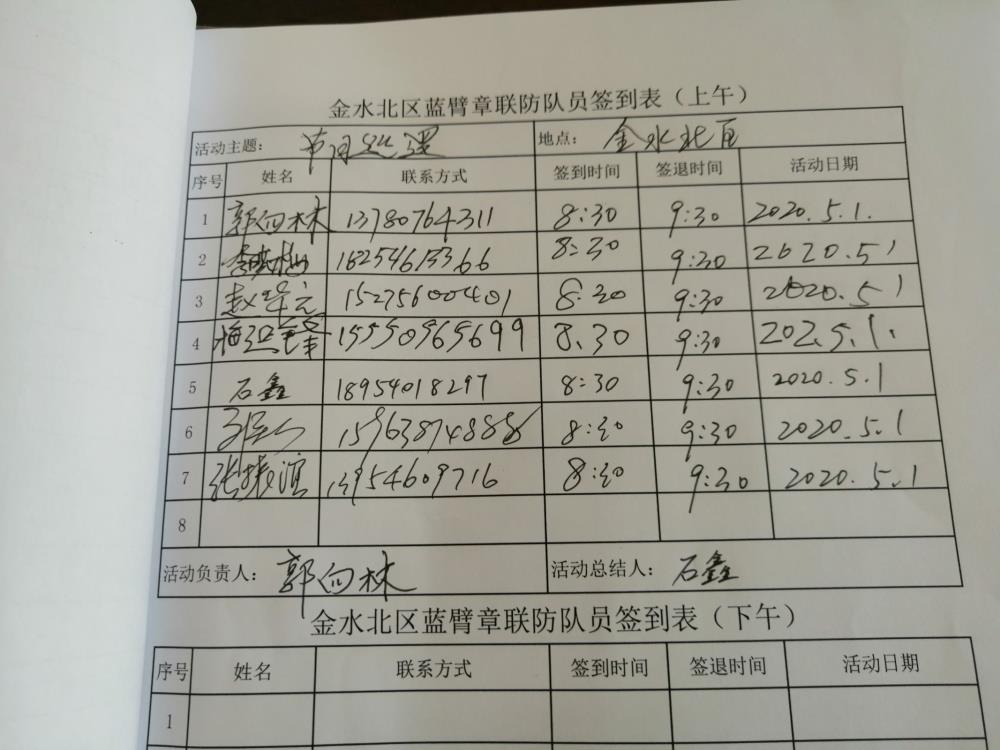 金水北区蓝臂章联防队员签到表（上午）
活动主题： 节间巡逻 地点： 金水北区
序号 姓名 联系方式 签到时间 签退时间 活动日期
1 郭向林 13780764311 8:30 9:30 2020.5.1.
2 8:30 9:30 2020.5.1
3 15275600401 8:30 9:30 2020.5.1
4 15550965699 8:30 9:30 202.5.1.
5 石鑫 18954018297 8:30 9:30 2020.5.1
6 8:30 9:30 2020.5.1
7 张振滨 13954609716 8:30 9:30 2020.5.1
8
活动负责人： 郭向林 活动总结人： 石鑫
金水北区蓝臂章联防队员签到表（下午）
序号 姓名 联系方式 签到时间 签退时间 活动日期
1